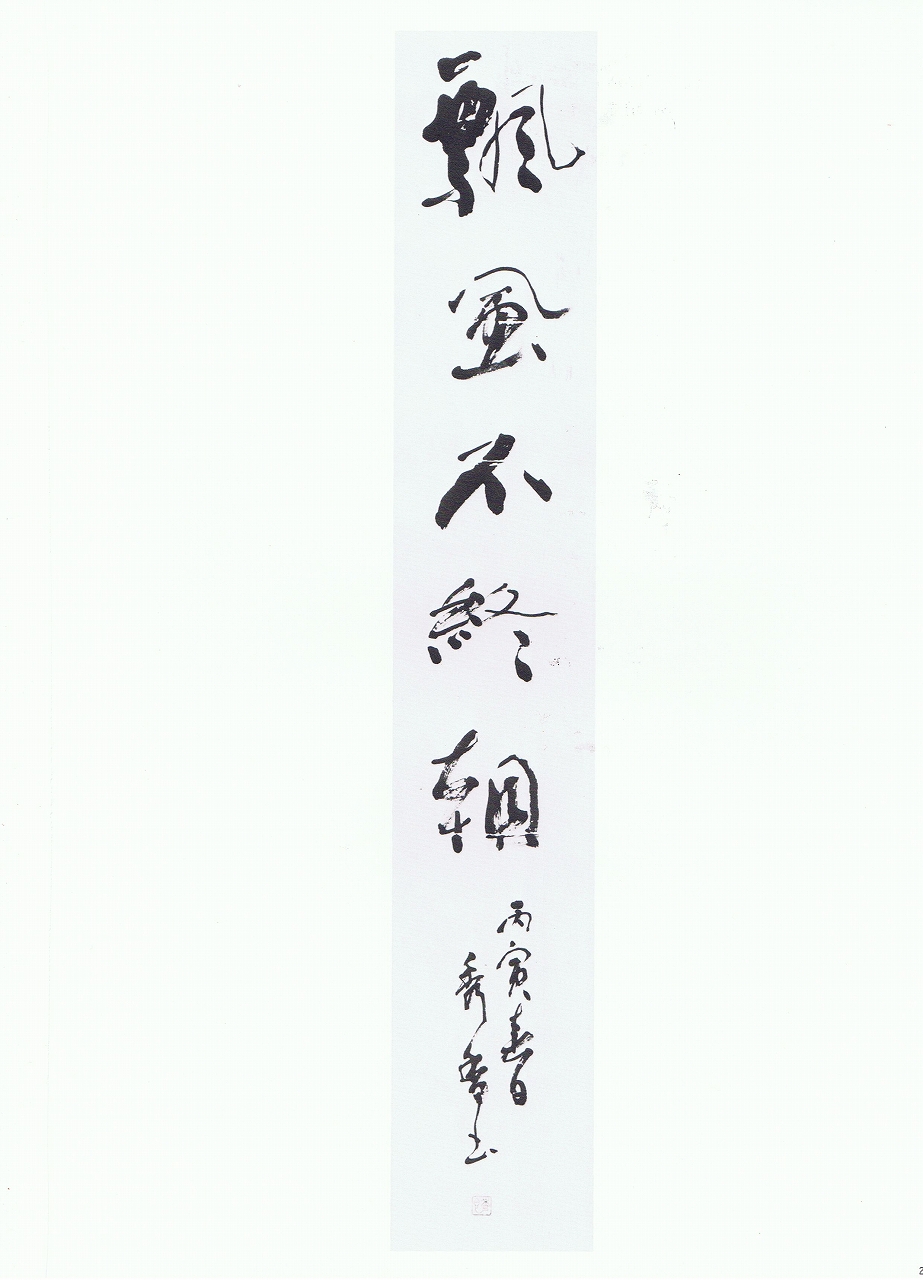 飄風不終朝
丙寅春日
秀香书
2